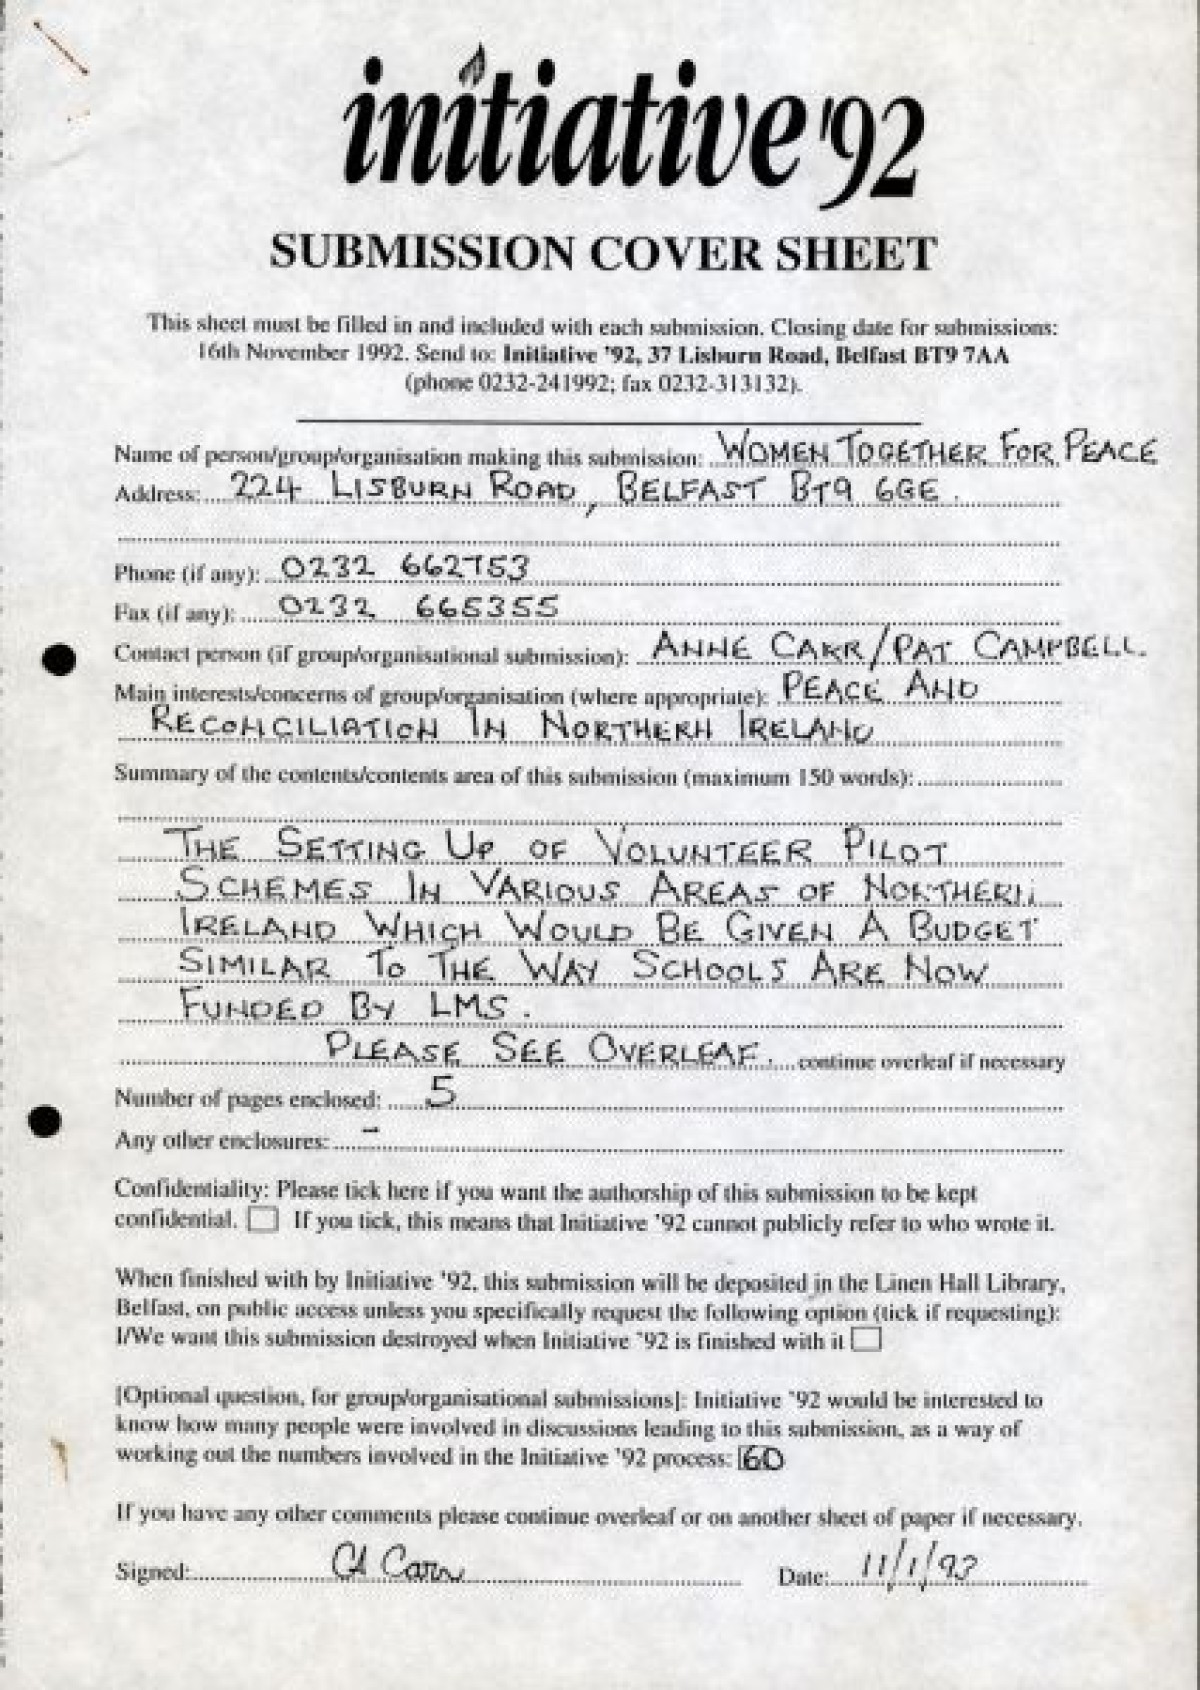 initiative '92
SUBMISSION COVER SHEET
This sheet must be filled in and included with each submission. Closing date for submissions:
16th November 1992. Send to: Initiative '92, 37 Lisburn Road, Belfast BT9 7AA
(phone 0232-241992; fax 0232-313132).
Name of person/group/organisation making this submission: WOMEN TOGETHER FOR PEACE
Address: 224 LISBURN ROAD, BELFAST BT9 6GE.
Phone (if any): 0232 662753
Fax (if any): 0232 665355
Contact person (if group/organisational submission): ANNE CARR/PAT CAMPBELL.
Main interests/concerns of group/organisation (where appropriate): PEACE AND
RECONCILIATION IN NORTHERN IRELAND
Summary of the contents/contents area of this submission (maximum 150 words):
THE SETTING UP OF VOLUNTEER PILOT
SCHEMES IN VARIOUS AREAS OF NORTHERN
IRELAND WHICH WOULD BE GIVEN A BUDGET
SIMILAR TO THE WAY SCHOOLS ARE NOW
FUNDED BY LMS.
PLEASE SEE OVERLEAF. continue overleaf if necessary
Number of pages enclosed: 5
Any other enclosures: -
Confidentiality: Please tick here if you want the authorship of this submission to be kept
confidential. If you tick, this means that Initiative '92 cannot publicly refer to who wrote it.
When finished with by Initiative '92, this submission will be deposited in the Linen Hall Library,
Belfast, on public access unless you specifically request the following option (tick if requesting):
I/We want this submission destroyed when Initiative '92 is finished with it
[Optional question, for group/organisational submissions]: Initiative '92 would be interested to
know how many people were involved in discussions leading to this submission, as a way of
working out the numbers involved in the Initiative '92 process: 60
If you have any other comments please continue overleaf or on another sheet of paper if necessary.
Signed: CA Carr Date: 11/1/93